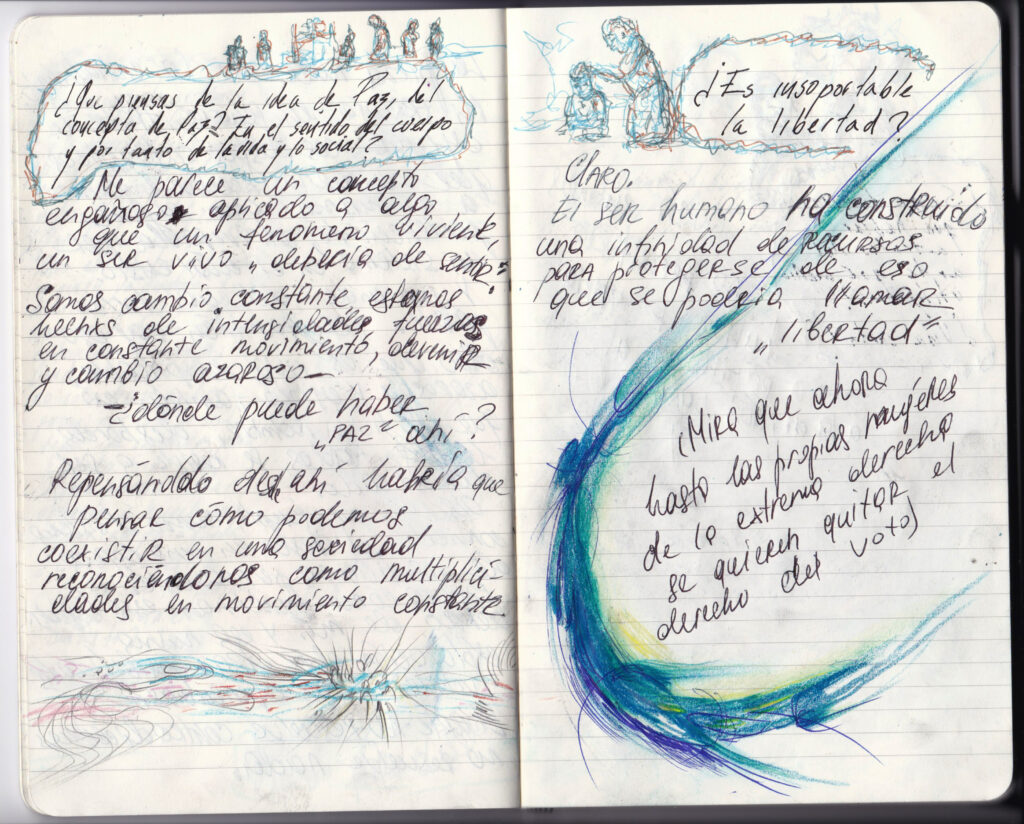 ¿Que piensas de la idea de Paz, del
concepto de Paz? En el sentido del cuerpo
y por tanto de la vida y lo social?
Me parece un concepto
engañoso aplicado a algo
que un fenómeno viviente,
un ser vivo „debería de sentir“
Somos cambio constante, estamos
hechxs de intensidades, fuerzas
en constante movimiento, devenir
y cambio azaroso—
—¿dónde puede haber
„PAZ“ ahí?
Repensándolo desde ahí habría que
pensar cómo podemos
coexistir en una sociedad
reconociéndonos como multiplici-
dades en movimiento constante.
¿Es insoportable
la libertad?
CLARO.
El ser humano ha construido
una infinidad de recursos
para protegerse de eso
que se podría llamar
„libertad“
(Mira que ahora
hasta las propias mujeres
de la extrema derecha
se quieren quitar el
derecho del voto)